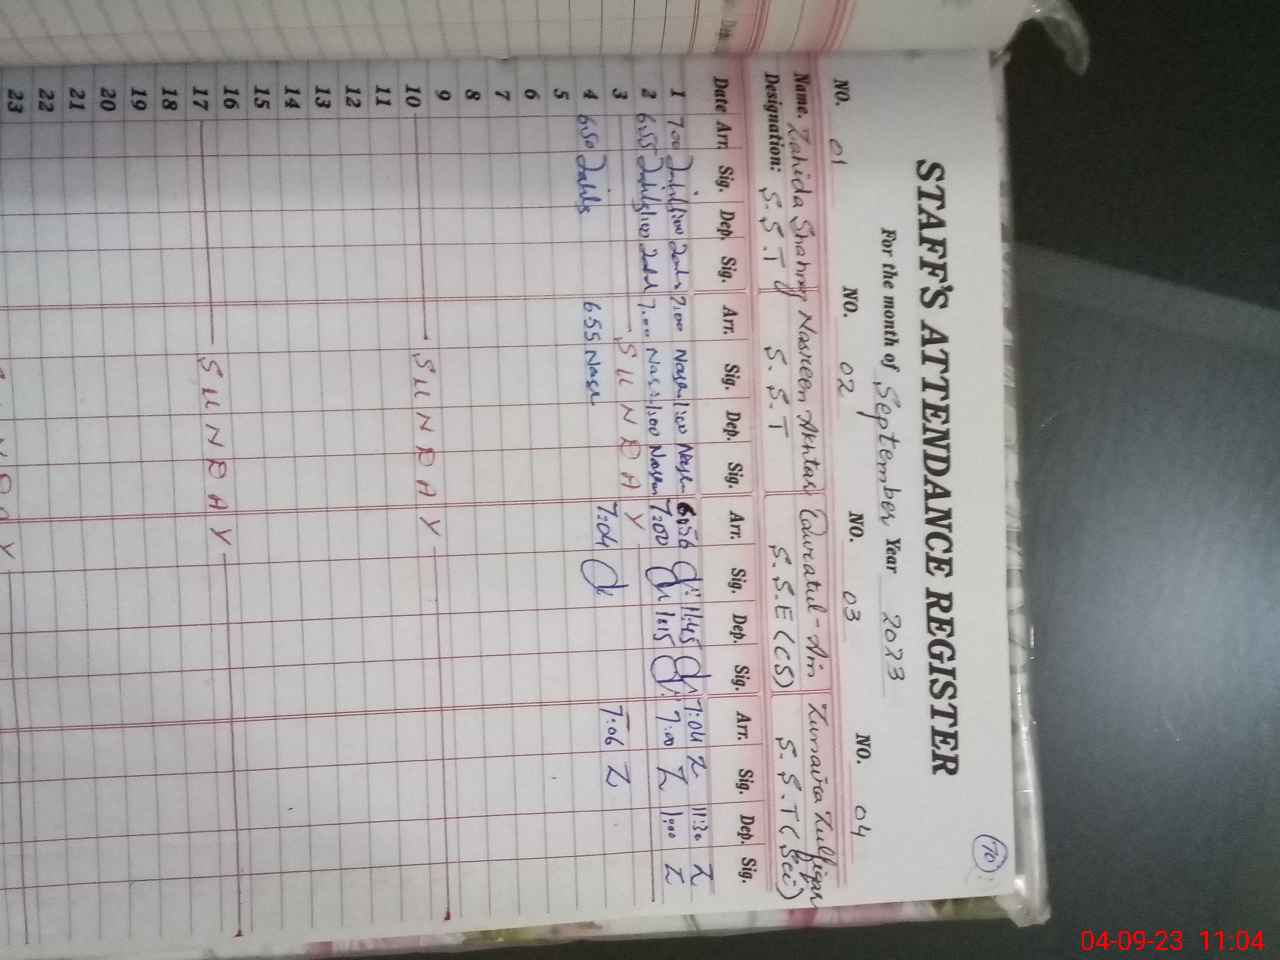 70
STAFF'S ATTENDANCE REGISTER
For the month of September Year 2023
NO. 01 NO. 02 NO. 03 NO. 04
Name. Zahida Shaheen Nasreen Akhtar Qurratul-Ain Zunaira Zulfiqar
Designation: S.S.T S.S.T S.S.E (CS) S.S.T (Sci)
Date Arr. Sig. Dep. Sig. Arr. Sig. Dep. Sig. Arr. Sig. Dep. Sig. Arr. Sig. Dep. Sig.
1 7:00 1:00 7:00 1:00 6:56 11:45 7:04 Z 11:30 Z
2 6:55 1:00 7:00 1:00 7:00 1:15 7:00 Z 1:00 Z
3 SUNDAY
4 6:50 6:55 7:04 7:06 Z
5
6
7
8
9
10 SUNDAY
11
12
13
14
15
16
17 SUNDAY
18
19
20
21
22
23
04-09-23 11:04